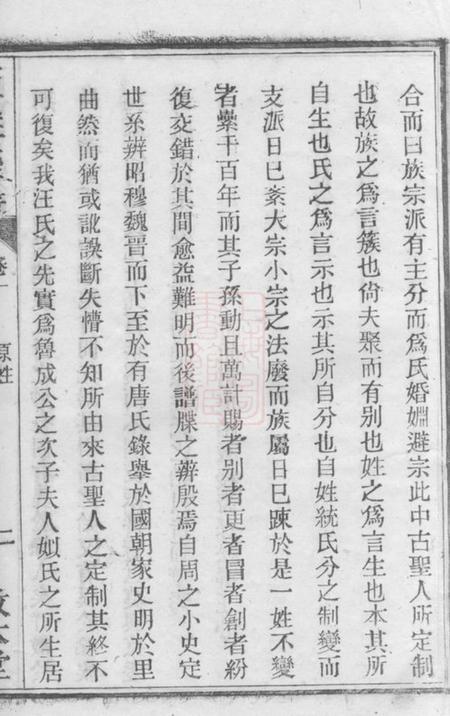 合而曰族宗派有主分而爲氏婚姻避宗此中古聖人所定制
也故族之爲言簇也尙夫聚而有别也姓之爲言生也本其所
自生也氏之爲言示也示其所自分也自姓統氏分之制變而
支派日已紊大宗小宗之法廢而族屬日已踈於是一姓不變
者纍千百年而其子孫動且萬計賜者别者更者冒者創者紛
復交錯於其間愈益難明而後譜牒之辨殷焉自周之小史定
世系辨昭穆魏晋而下至於有唐氏錄舉於國朝家史明於里
曲然而猶或訛誤斷失懵不知所由來古聖人之定制其終不
可復矣我汪氏之先實爲魯成公之次子夫人姒氏之所生居
卷一
原姓
二